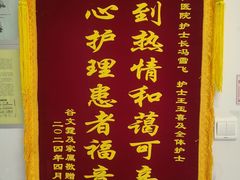 医院 护士长冯雪飞 护士王玉喜及全体护士
到热情和蔼可亲
心护理患者福音
谷文霞及家属敬赠
二〇二四年四月